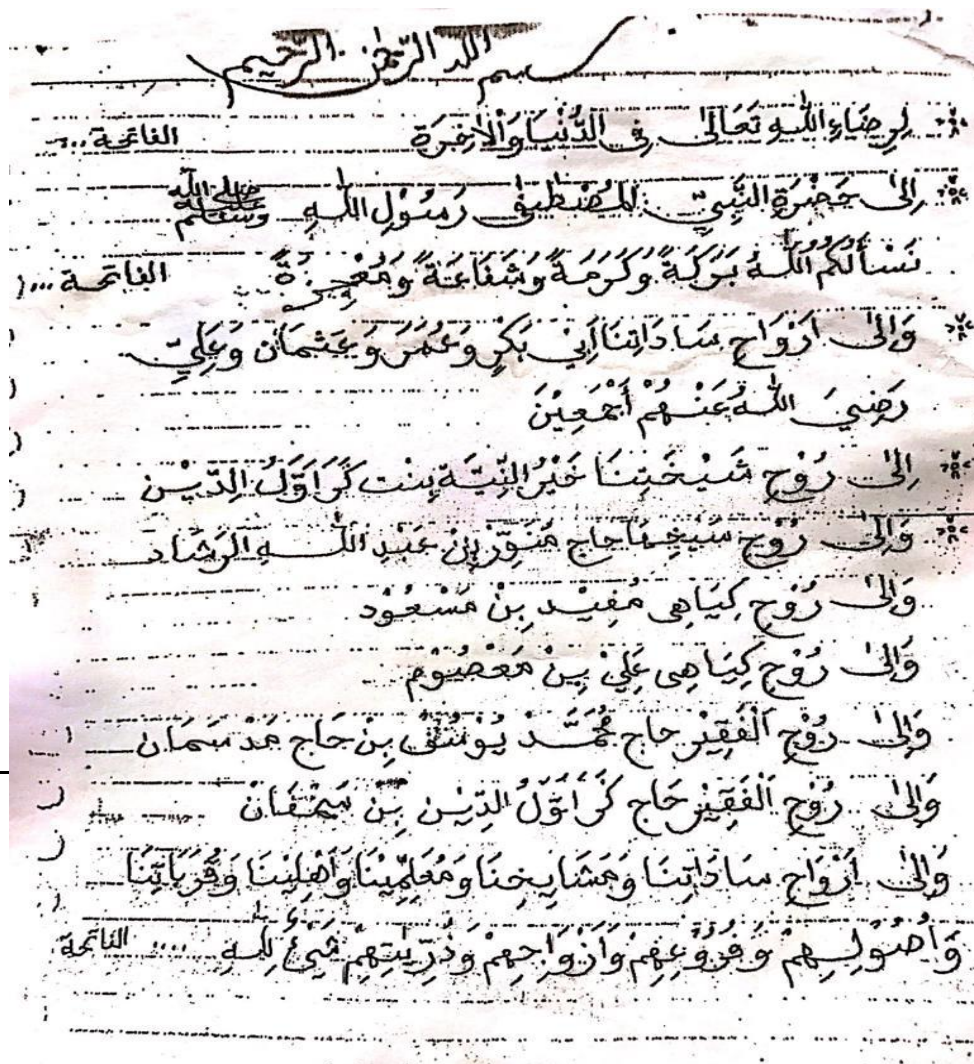 بسم الله الرّحمٰن الرّحيم
لِرِضَاءِ اللّٰهِ تَعَالىٰ فِى الدُّنْيَا وَالْاٰخِرَة الفاتحة ...
اِلىٰ حَضْرَةِ النَّبِيِّ المُصْطَفىٰ رَسُوْلِ اللّٰهِ صلى الله عليه وسلم
نَسْأَلُكُمُ اللّٰهُ بَرَكَةً وَكَرَمَةً وَشَفَاعَةً وَمُعْجِزَةً الفاتحة ...
وَاِلىٰ اَرْوَاحِ سَادَاتِنَا اَبِيْ بَكْرٍ وَعُمَرَ وَعُثْمَان وَعَلِيّ
رَضِيَ اللّٰهُ عَنْهُمْ أَجْمَعِيْنَ
اِلىٰ رُوْحِ شَيْخَتِنَا خَيْرُ النِّيَّة بِنْت كَرَاوَّلُ الدِّيْن
وَاِلىٰ رُوْحِ شَيْخِهَا حاج مُنَوِّرْ بِنْ عَبْدِ اللّٰهِ الرَشَاد
وَاِلىٰ رُوْحِ كِيَاهِى مُفِيْد بِنْ مَسْعُوْد
وَاِلىٰ رُوْحِ كِيَاهِى عَلِيْ بِنْ مَعْصُوْم
وَاِلىٰ رُوْحِ اَلْفَقِيْر حاج مُحَمَّد يُوْسُفْ بِنْ حَاج مَدْ سَمَان
وَاِلىٰ رُوْحِ اَلْفَقِيْر حَاج كَرَاوَّلُ الدِّيْن بِنْ
وَاِلىٰ اَرْوَاحِ سَادَاتِنَا وَمَشَايِخِنَا وَمُعَلِّمِيْنَا وَأَهْلِيْنَا وَقُرَبَاتِنَا
وَأُصُوْلِهِمْ وَفُرُوْعِهِمْ وَأَزْوَاجِهِمْ وَذُرِّيَتِهِمْ شَيْئٌ لِلّٰهِ .... الفاتحة